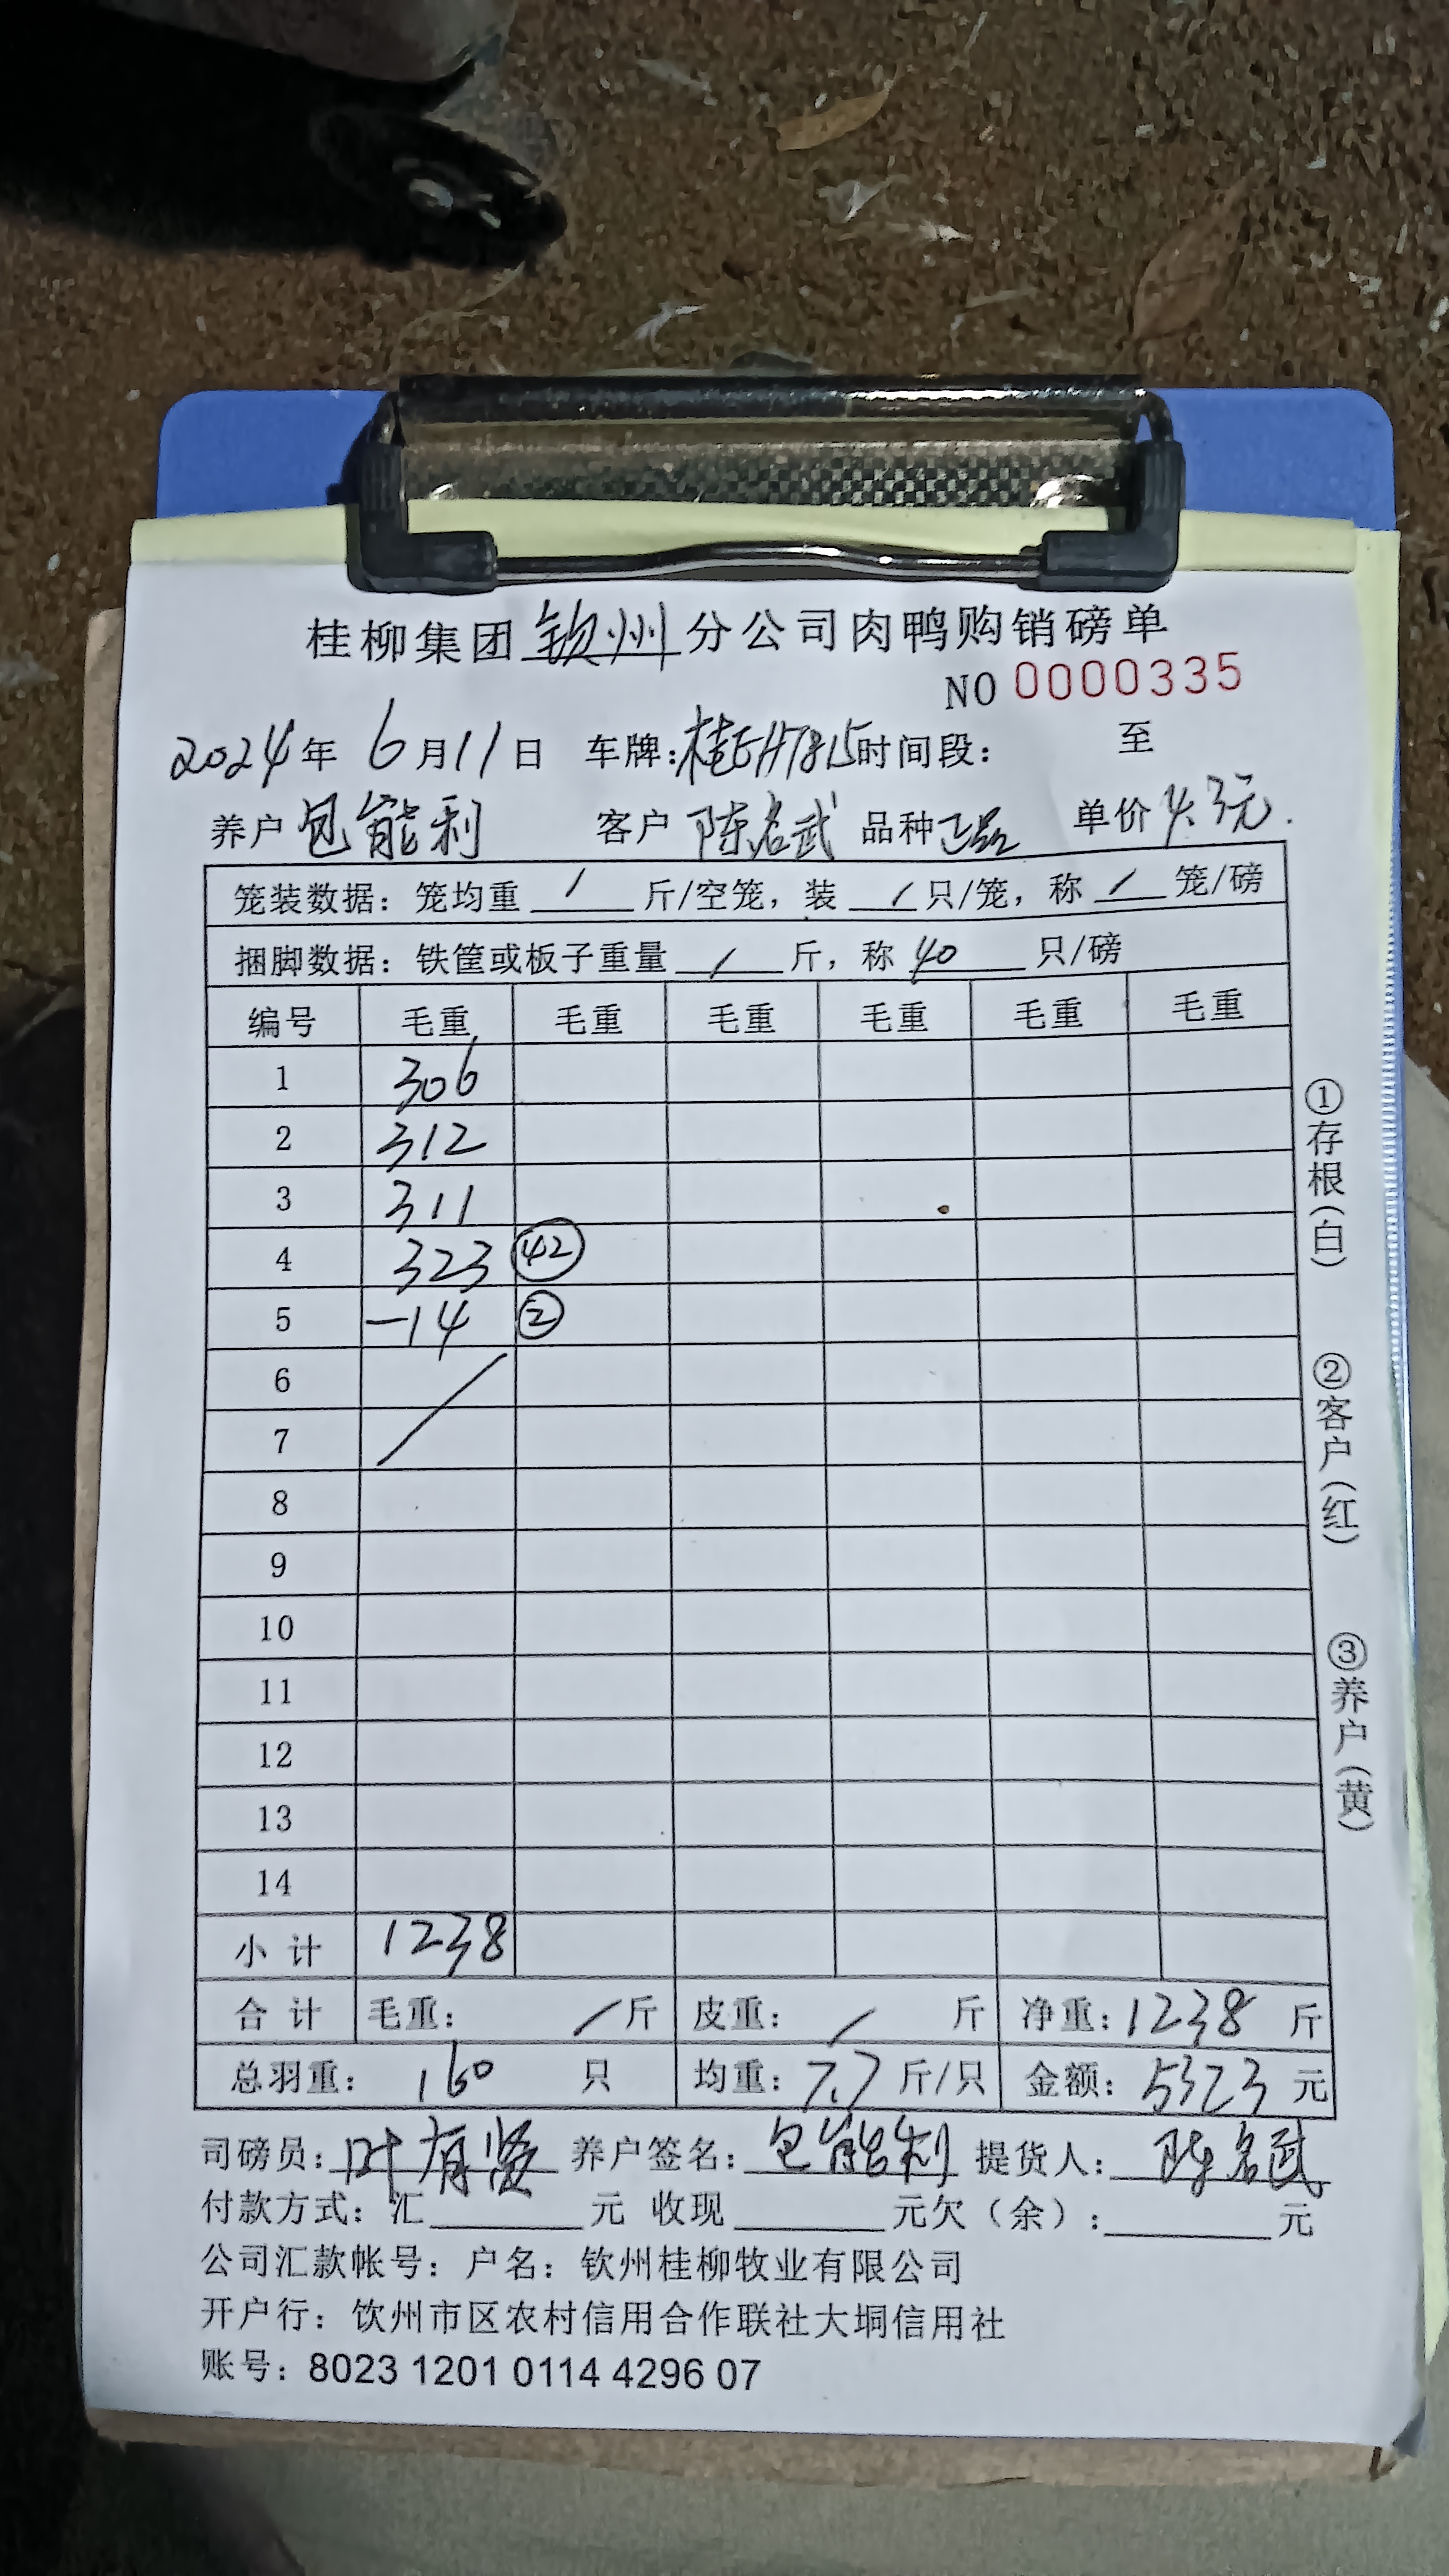 桂柳集团钦州分公司肉鸭购销磅单
NO 0000335
2024年 6月11日 车牌:桂EH7815时间段: 至
养户 包能利 客户 陈名武 品种 正品 单价 4.3元.
笼装数据: 笼均重 / 斤/空笼, 装 / 只/笼, 称 / 笼/磅
捆脚数据: 铁筐或板子重量 / 斤, 称 40 只/磅
编号 毛重 毛重 毛重 毛重 毛重 毛重
1 306
2 312
3 311
4 323 ㊷
5 -14 ②
6
7
8
9
10
11
12
13
14
小计 1238
合计 毛重: / 斤 皮重: / 斤 净重: 1238 斤
总羽重: 160 只 均重: 7.7 斤/只 金额: 5323 元
司磅员: 叶有贤 养户签名: 包能利 提货人: 陈名武
付款方式: 汇______元 收现______元欠（余）:______元
公司汇款帐号: 户名: 钦州桂柳牧业有限公司
开户行: 钦州市区农村信用合作联社大垌信用社
账号: 8023 1201 0114 4296 07
①存根(白)
②客户(红)
③养户(黄)